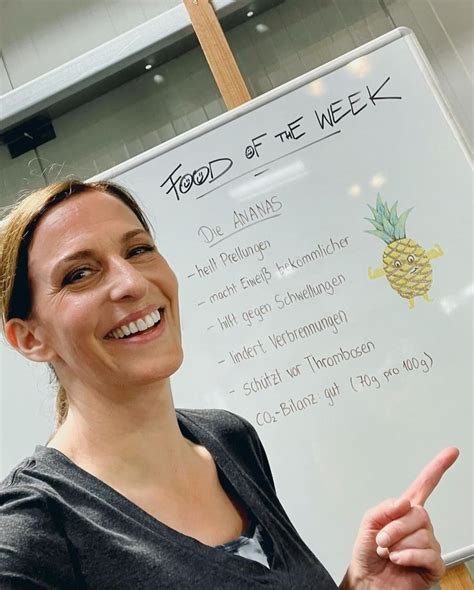 FOOD OF THE WEEK
Die ANANAS
- heilt Prellungen
- macht Eiweiß bekömmlicher
- hilft gegen Schwellungen
- lindert Verbrennungen
- schützt vor Thrombosen
CO₂-Bilanz: gut (70g pro 100g)